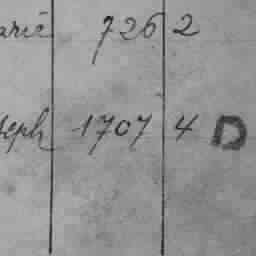 arić 726 2
seph 1707 4 D